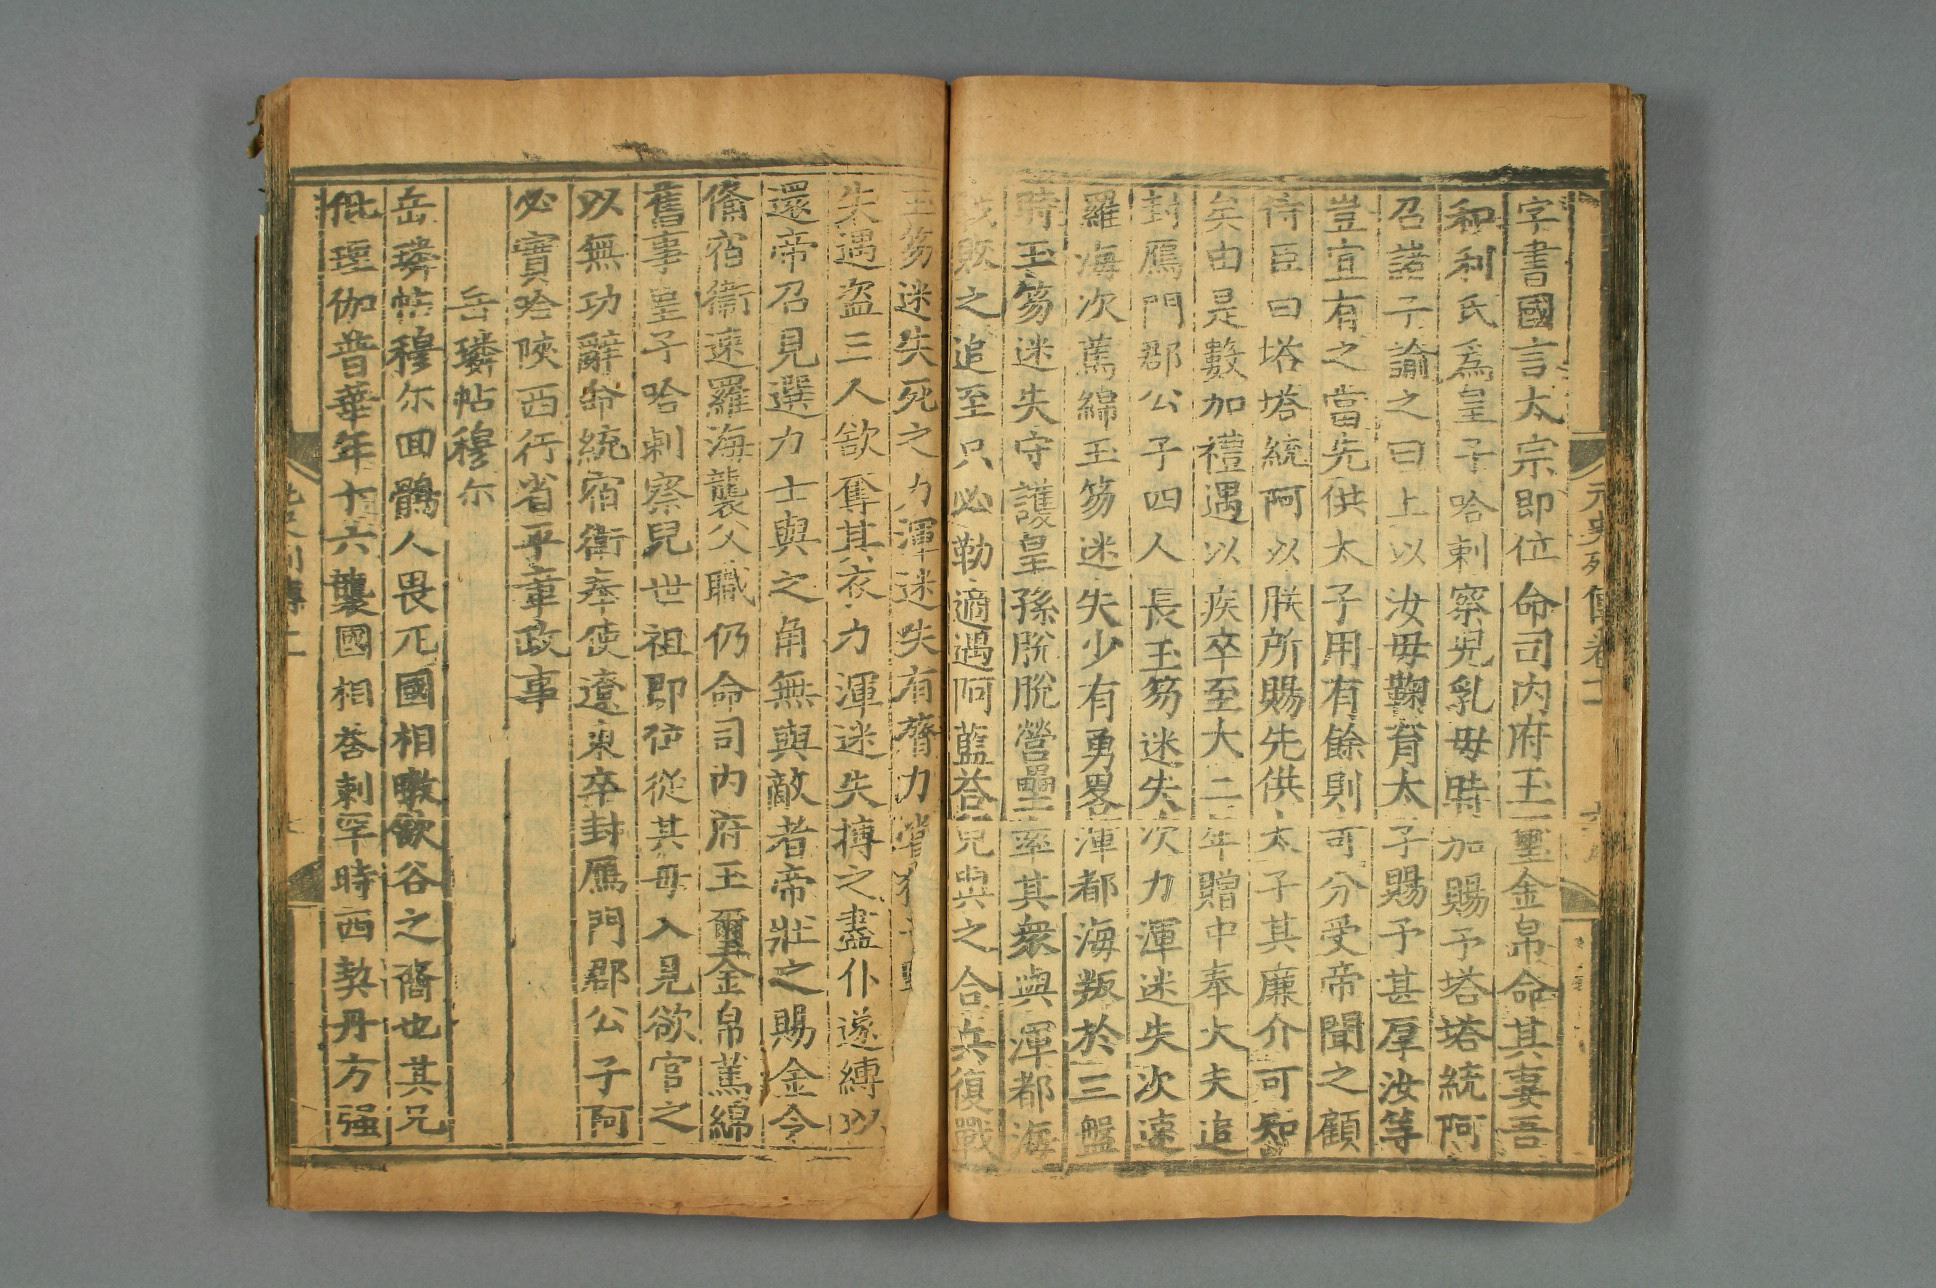 元史列傳卷十一
字書國言太宗即位命司內府玉璽金帛命其妻吾
和利氏爲皇子哈剌察兒乳母時加賜予塔塔統阿
召諸子諭之曰上以汝母鞠育太子賜予甚厚汝等
豈宜有之當先供太子用有餘則可分受帝聞之顧
侍臣曰塔塔統阿以朕所賜先供太子其廉介可知
矣由是數加禮遇以疾卒至大二年贈中奉大夫追
封鴈門郡公子四人長玉笏迷失次力渾迷失次速
羅海次篤綿玉笏迷失少有勇畧渾都海叛於三盤
時玉笏迷失守護皇孫脫脫營壘率其衆與渾都海
戰敗之追至只必勒適遇阿藍荅兒與之合兵復戰
玉笏迷失死之力渾迷失有膂力嘗獵
失遇盜三人欲奪其衣力渾迷失搏之盡仆遂縛以
還帝召見選力士與之角無與敵者帝壯之賜金令
備宿衞速羅海襲父職仍命司內府玉璽金帛篤綿
舊事皇子哈剌察兒世祖即位從其母入見欲官之
以無功辭命統宿衞奉使遼東卒封鴈門郡公子阿
必實哈陝西行省平章政事
岳璘帖穆尔
岳璘帖穆尔回鶻人畏兀國相暾欲谷之裔也其兄
仳理伽普華年十六襲國相荅剌罕時西契丹方强